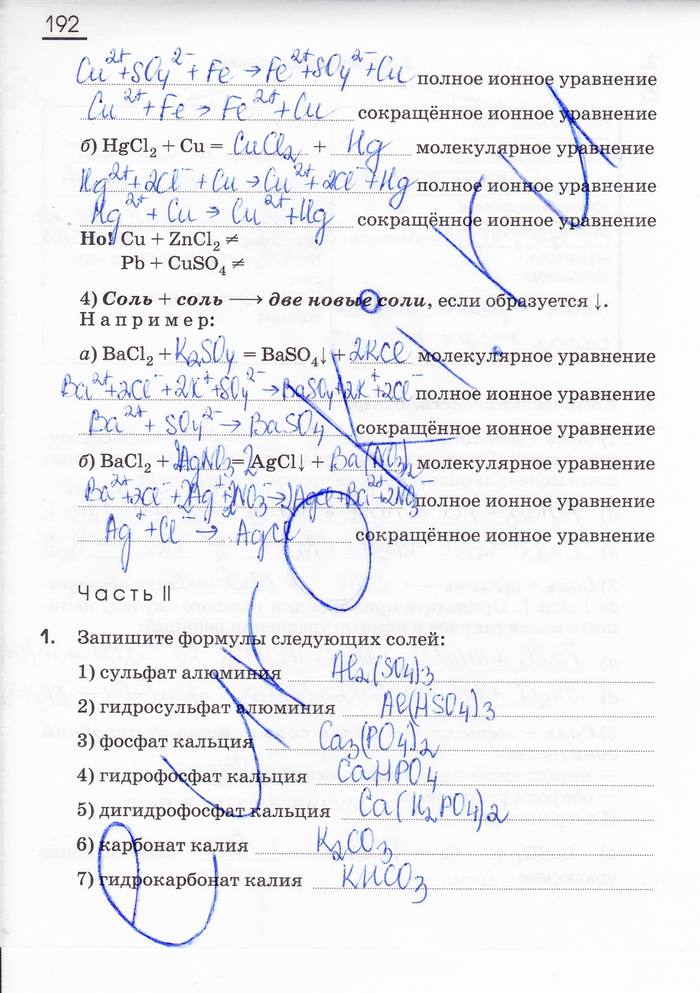 192
Cu²⁺+SO₄²⁻ + Fe → Fe²⁺+SO₄²⁻+Cu полное ионное уравнение
Cu²⁺+Fe → Fe²⁺+Cu сокращённое ионное уравнение
б) HgCl₂ + Cu = CuCl₂ + Hg молекулярное уравнение
Hg²⁺+2Cl⁻ + Cu → Cu²⁺+2Cl⁻+Hg полное ионное уравнение
Hg²⁺ + Cu → Cu²⁺+Hg сокращённое ионное уравнение
Но! Cu + ZnCl₂ ≠
Pb + CuSO₄ ≠
4) Соль + соль ⟶ две новые соли, если образуется ↓.
Например:
а) BaCl₂ + K₂SO₄ = BaSO₄↓ + 2KCl молекулярное уравнение
Ba²⁺+2Cl⁻+2K⁺+SO₄²⁻→BaSO₄+2K⁺+2Cl⁻ полное ионное уравнение
Ba²⁺ + SO₄²⁻ → BaSO₄ сокращённое ионное уравнение
б) BaCl₂ + 2AgNO₃ = 2AgCl↓ + Ba(NO₃)₂ молекулярное уравнение
Ba²⁺+2Cl⁻+2Ag⁺+2NO₃⁻→2AgCl+Ba²⁺+2NO₃⁻ полное ионное уравнение
Ag⁺+Cl⁻ → AgCl сокращённое ионное уравнение
Часть II
1. Запишите формулы следующих солей:
1) сульфат алюминия Al₂(SO₄)₃
2) гидросульфат алюминия Al(HSO₄)₃
3) фосфат кальция Ca₃(PO₄)₂
4) гидрофосфат кальция CaHPO₄
5) дигидрофосфат кальция Ca(H₂PO₄)₂
6) карбонат калия K₂CO₃
7) гидрокарбонат калия KHCO₃